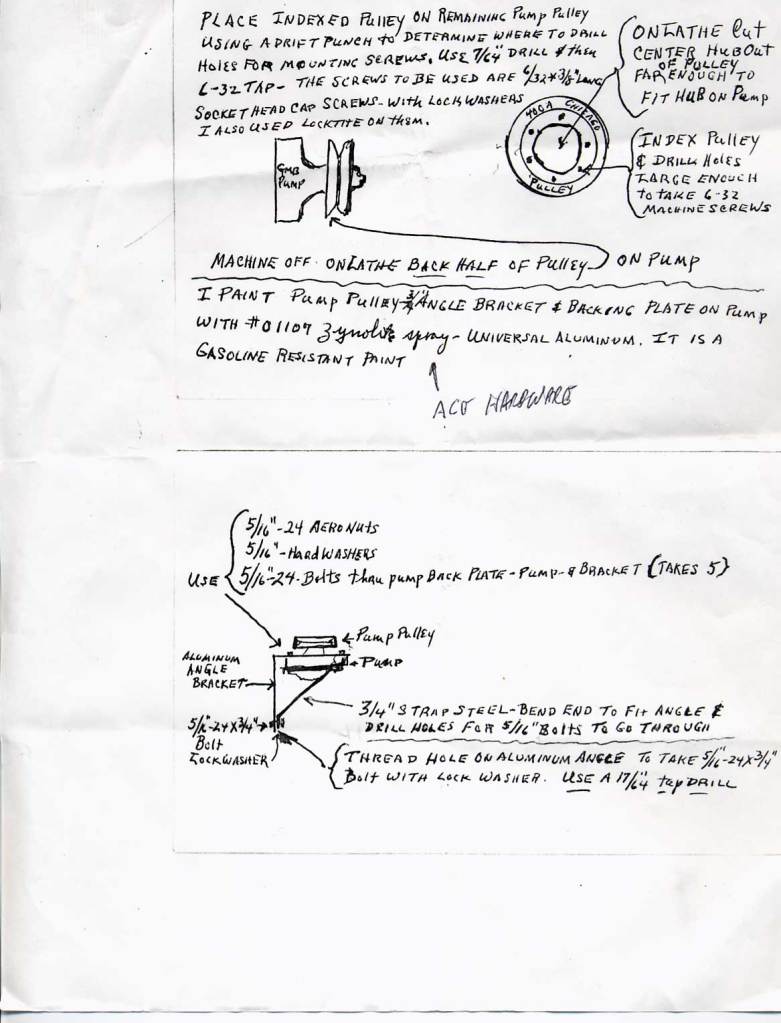 PLACE INDEXED PULLEY ON REMAINING PUMP PULLEY
USING A DRIFT PUNCH TO DETERMINE WHERE TO DRILL
HOLES FOR MOUNTING SCREWS. USE 7/64" DRILL & then
6-32 TAP- THE SCREWS TO BE USED ARE 6/32 x 3/8" LONG
SOCKET HEAD CAP SCREWS- WITH LOCKWASHERS
I ALSO USED LOCKTITE ON THEM.
ON LATHE CUT
CENTER HUB OUT
OF PULLEY
FAR ENOUGH TO
FIT HUB ON PUMP
400A CHICAGO
PULLEY
INDEX PULLEY
& DRILL HOLES
LARGE ENOUGH
to TAKE 6-32
MACHINE SCREWS
GMB
PUMP
MACHINE OFF ON LATHE BACK HALF OF PULLEY ON PUMP
I PAINT PUMP PULLEY ANGLE BRACKET & BACKING PLATE ON PUMP
WITH #01107 Zynolite spray- UNIVERSAL ALUMINUM. IT IS A
GASOLINE RESISTANT PAINT
ACE HARDWARE
5/16"-24 AERO NUTS
5/16"-HARD WASHERS
USE 5/16"-24-Bolts thru pump BACK PLATE-PUMP-& BRACKET (TAKES 5)
Pump Pulley
PUMP
ALUMINUM
ANGLE
BRACKET
3/4" STRAP STEEL-BEND END TO FIT ANGLE &
DRILL HOLES FOR 5/16" BOLTS TO GO THROUGH
5/16"-24X3/4"
Bolt
LOCKWASHER
THREAD HOLE ON ALUMINUM ANGLE TO TAKE 5/16-24X3/4"
Bolt WITH LOCK WASHER. USE A 17/64" tap DRILL